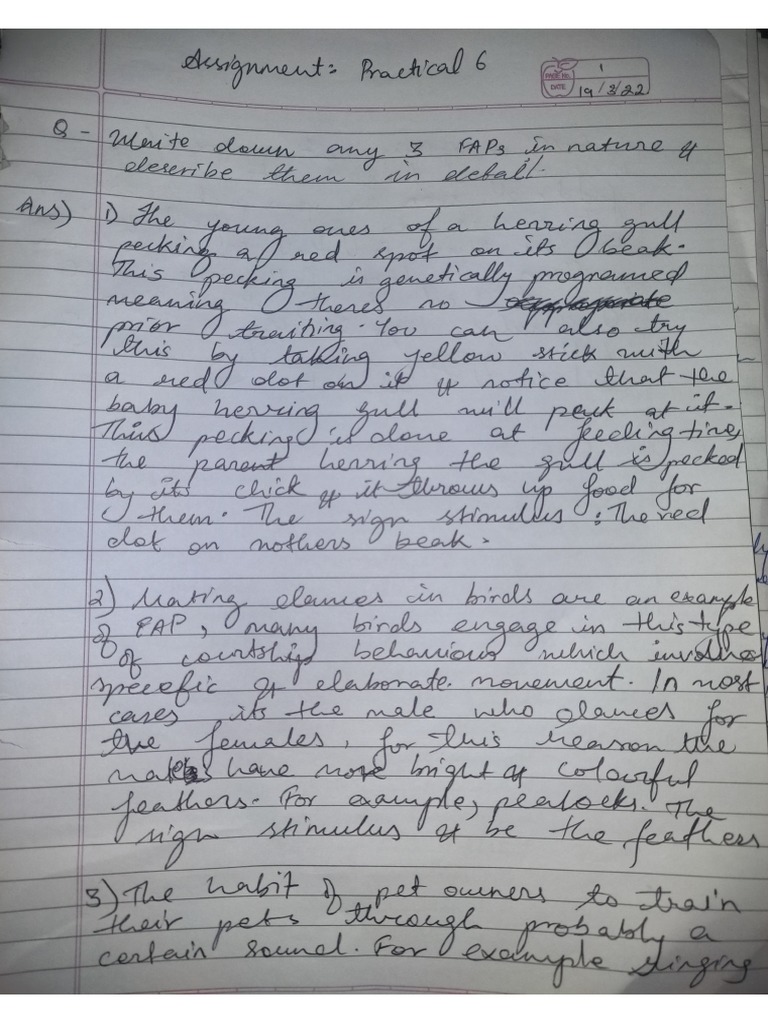 Assignment: Practical 6
PAGE No. 1
DATE 19/3/22
Q - Write down any 3 FAPs in nature &
describe them in detail.
Ans) 1) The young ones of a herring gull
pecking a red spot on its beak.
This pecking is genetically programed
meaning theres no
prior training. You can also try
this by taking yellow stick with
a red dot on it & notice that the
baby herring gull will peck at it.
This pecking is done at feeding time,
the parent herring the gull is pecked
by its chick & it throws up food for
them. The sign stimulus : The red
dot on mothers beak.
2) Mating dances in birds are an example
of FAP, many birds engage in this type
of courtship behaviour which involves
specefic & elaborate movement. In most
cases its the male who dances for
the females, for this reason the
males have more bright & colourful
feathers. For example, peacocks. The
sign stimulus & be the feathers
3) The habit of pet owners to train
their pets through probably a
certain sound. For example ringing